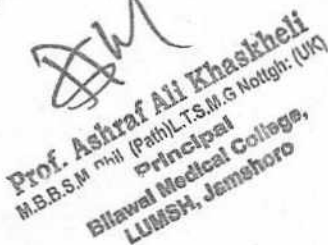 Prof. Ashraf Ali Khaskheli
M.B.B.S.M Phil (Path)L.T.S.M.G Nottgh: (UK)
Principal
Bilawal Medical College,
LUMSH, Jamshoro